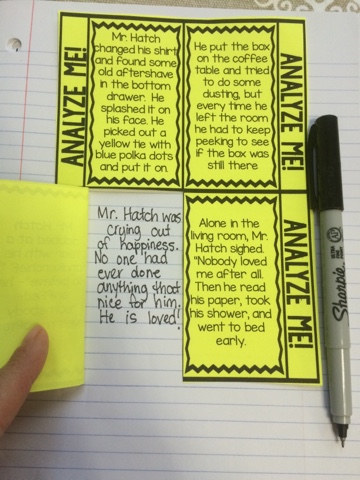 ANALYZE ME!
Mr. Hatch
changed his shirt
and found some
old aftershave
in the bottom
drawer. He
splashed it on
his face. He
picked out a
yellow tie with
blue polka dots
and put it on.
He put the box
on the coffee
table and tried
to do some
dusting, but
every time he
left the room
he had to keep
peeking to see
if the box was
still there
ANALYZE ME!
Mr. Hatch was
crying out
of happiness.
No one had
ever done
anything that
nice for him.
He is loved!
Alone in the
living room, Mr.
Hatch sighed.
"Nobody loved
me after all.
Then he read
his paper, took
his shower, and
went to bed
early.
ANALYZE ME!
Sharpie